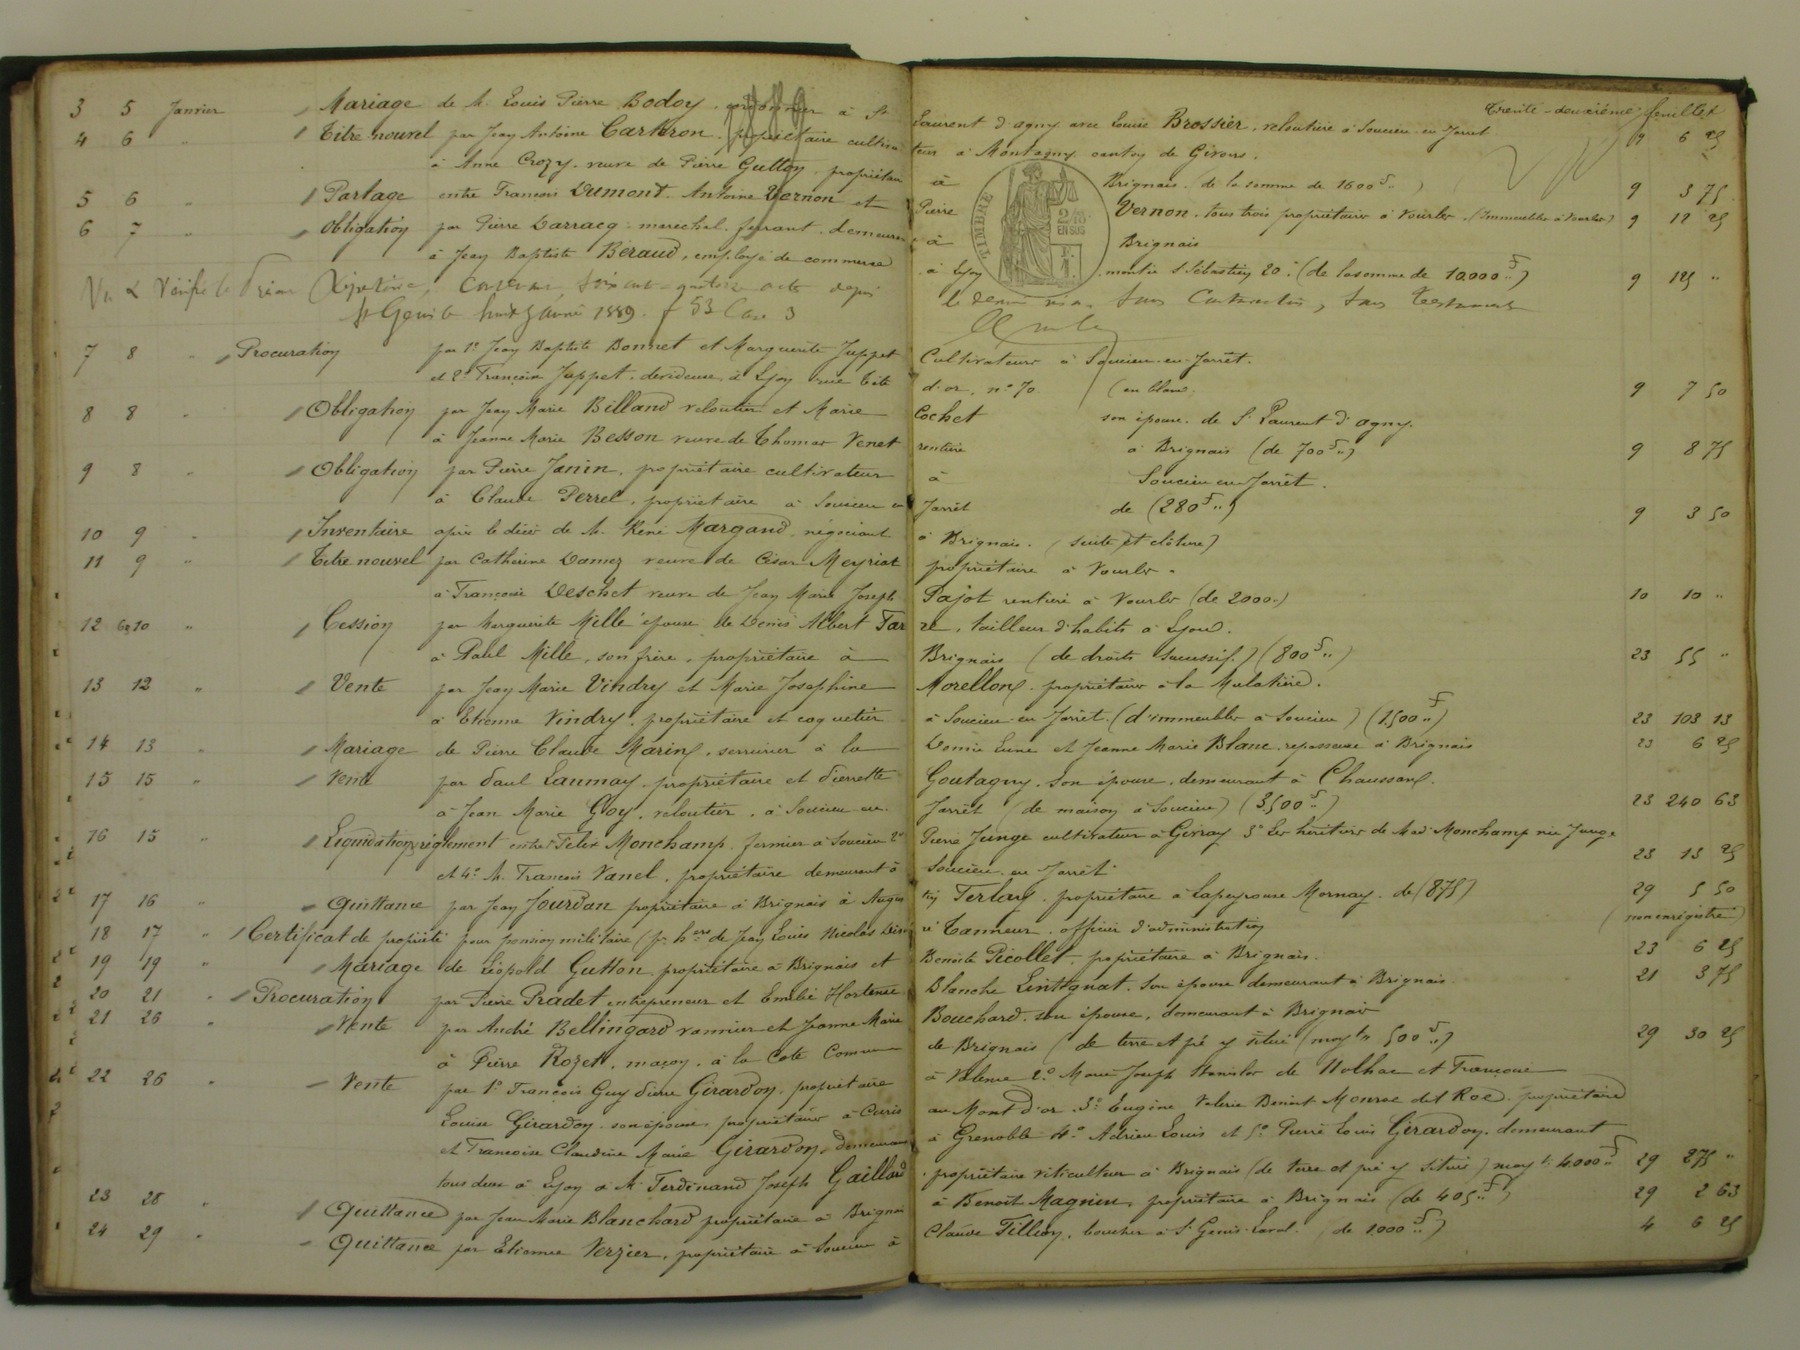 Trente-deuxième feuillet
1889
3 5 Janvier Mariage de M. Louis Pierre Bodoy, cordonnier à St Laurent d'agny avec Louise Brossier, veloutière à Soucieu-en-Jarret 9 6 25
4 6 " Titre nouvel par Jean Antoine Carkron, propriétaire cultivateur à Montagny canton de Givors.
à Anne Crozy, veuve de Pierre Gutton, propriétaire à Brignais (de la somme de 1600 f..) 9 3 75
5 6 " Partage entre François Dumont, Antoine Vernon et Pierre Vernon, tous trois propriétaires à Vourles (Immeubles à Vourles) 9 12 25
6 7 " Obligation par Pierre Darracq maréchal ferrant, demeurant à Brignais
à Jean Baptiste Beraud, employé de commerce à Lyon montée St Sébastien 20 (de la somme de 10.000 f..) 9 125 "
TIMBRE 2/10 EN SUS F. 1.
Vu & Vérifié le depuis le dernier visa, sans Contravention, sans
St Genis le huit Janvier 1889. f° 53 Case 3
7 8 " Procuration par 1° Jean Baptiste Bonnet et Marguerite Juppet Cultivateurs à Soucieu-en-Jarrêt.
et 2° Françoise Juppet, devideuse, à Lyon rue tête d'or, n° 70 (en blanc. 9 7 50
8 8 " Obligation par Jean Marie Billand veloutier et Marie Cochet son épouse, de St Laurent d'agny.
à Jeanne Marie Besson veuve de Thomas Venet rentière à Brignais (de 700 f..) 9 8 75
9 8 " Obligation par Pierre Janin, propriétaire cultivateur à Soucieu en Jarrêt.
à Claude Perrel, propriétaire à Soucieu en Jarrêt de (280 f..) 9 3 50
10 9 " Inventaire après le décès de M. René Margand, négociant à Brignais. (suite et clôture)
11 9 " Titre nouvel par Catherine Damez veuve de César Meyriat propriétaire à Vourles.
à Françoise Deschet veuve de Jean Marie Joseph Pajot rentière à Vourles (de 2000..) 10 10 "
12 10 " Cession par Marguerite Mille épouse de Denis Albert Tarre, tailleur d'habits à Lyon.
à Paul Mille, son frère, propriétaire à Brignais (de droits successifs) (800 f..) 23 55 "
13 12 " Vente par Jean Marie Vindry et Marie Josephine Morellon, propriétaires à la Mulatière.
à Etienne Vindry, propriétaire et coquetier à Soucieu en Jarrêt. (d'immeubles à Soucieu) (1.500 f..) 23 103 13
14 13 " Mariage de Pierre Claude Marin, serrurier à la Demie Lune et Jeanne Marie Blanc, repasseuse à Brignais 23 6 25
15 15 " Vente par Paul Launay, propriétaire et Pierrette Goutagny, son épouse, demeurant à Chaussan.
à Jean Marie Gloy, veloutier, à Soucieu en Jarrêt (de maison à Soucieu) (3,500 f..) 23 240 63
16 15 " Liquidation, règlement entre Félix Monchamp, fermier à Soucieu 2° Pierre Junge cultivateur à Givray 3° Les héritiers de Mad. Monchamp née Junge
et 4° M. François Vanel, propriétaire demeurant à Soucieu en Jarrêt. 23 13 25
17 16 " Quittance par Jean Jourdan propriétaire à Brignais à Augustin Terlay, propriétaire à Lapeyrouse Mornay. de (875) 29 5 50
18 17 " Certificat de propriété pour pension militaire (pr. hers de Jean Louis Nicolas Désiré Tanneur, officier d'administration (non enregistré)
19 19 " Mariage de Léopold Gutton, propriétaire à Brignais et Benoîte Picollet, propriétaire à Brignais. 23 6 25
20 21 " Procuration par Pierre Pradet entrepreneur et Emélie Hortense Blanche Lintignat, son épouse demeurant à Brignais. 21 3 75
21 26 " Vente par André Bellingard vannier et Jeanne Marie Bouchard, son épouse, demeurant à Brignais
à Pierre Rozet, maçon, à la Cote Commune de Brignais (de terre et pré y situés (moyt 500 f..) 29 30 25
22 26 " Vente par 1° François Guy Pierre Girardon, propriétaire à Valence 2° Marie Joseph Stanislas de Nolhac et Françoise
Louise Girardon, son épouse, propriétaires à Curis au Mont d'or 3° Eugène Valérie Benoît Monroe dit Roé, propriétaire
et Françoise Claudine Marie Girardon, demeurant à Grenoble 4° Adrien Louis et 5° Pierre Louis Girardon, demeurant
tous deux à Lyon à M. Ferdinand Joseph Gaillard, propriétaire viticulteur à Brignais (de terre et pré y situés) moyt 4.000 f.. 29 275 "
23 28 " Quittance par Jean Marie Blanchard propriétaire à Brignais à Benoît Magnin, propriétaire à Brignais (de 405 f..) 29 2 63
24 29 " Quittance par Etienne Verzier, propriétaire à Soucieu à Claude Tillion, boucher à St Genis-Laval. (de 1.000 f..) 4 6 25